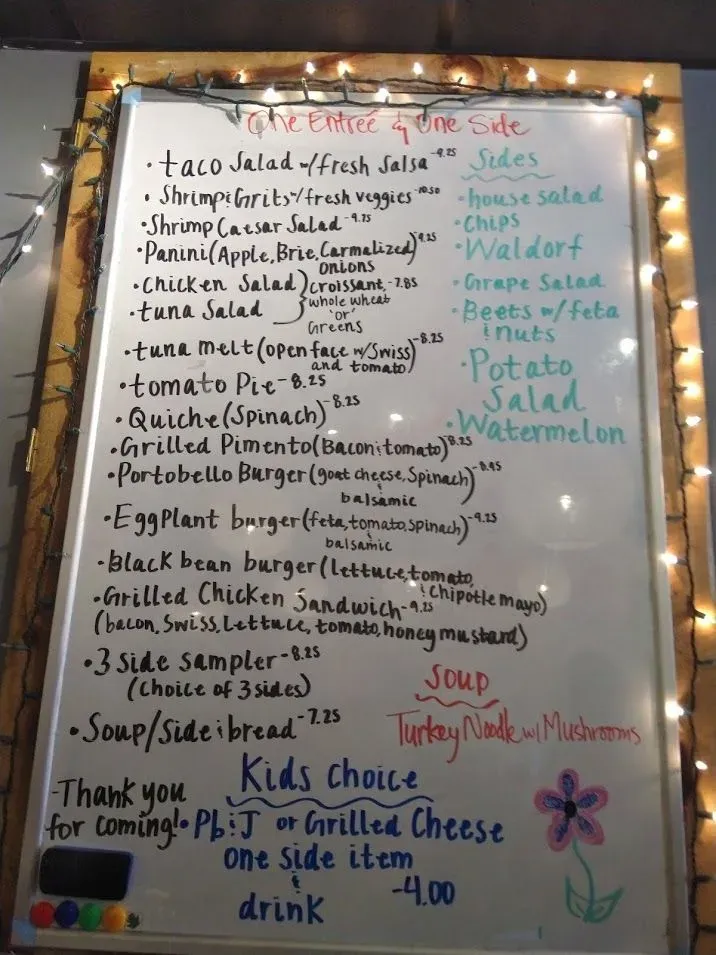 One Entreé & One Side
• taco Salad w/fresh Salsa -9.25
• Shrimp & Grits w/fresh veggies -10.50
• Shrimp Caesar Salad -9.75
• Panini (Apple, Brie, Carmalized onions) -9.25
• Chicken Salad
• tuna Salad
croissant, -7.85
whole wheat
'or'
Greens
• tuna melt (open face w/Swiss -8.25
and tomato)
• tomato Pie -8.25
• Quiche (Spinach) -8.25
• Grilled Pimento (Bacon & tomato) -8.25
• Portobello Burger (goat cheese, Spinach
& balsamic)
• EggPlant burger (feta, tomato, spinach) -9.25
& balsamic
• Black bean burger (lettuce, tomato,
& Chipotle mayo)
• Grilled Chicken Sandwich -9.25
(bacon, Swiss, Lettuce, tomato, honey mustard)
• 3 side sampler -8.25
(Choice of 3 sides)
• Soup/Side & bread -7.25
Sides
• house salad
• Chips
• Waldorf
• Grape Salad
• Beets w/feta
& nuts
• Potato
Salad
• Watermelon
Soup
Turkey Noodle w/ Mushrooms
-Thank you
for coming!
Kids Choice
• Pb & J or Grilled Cheese
one side item
&
drink -4.00